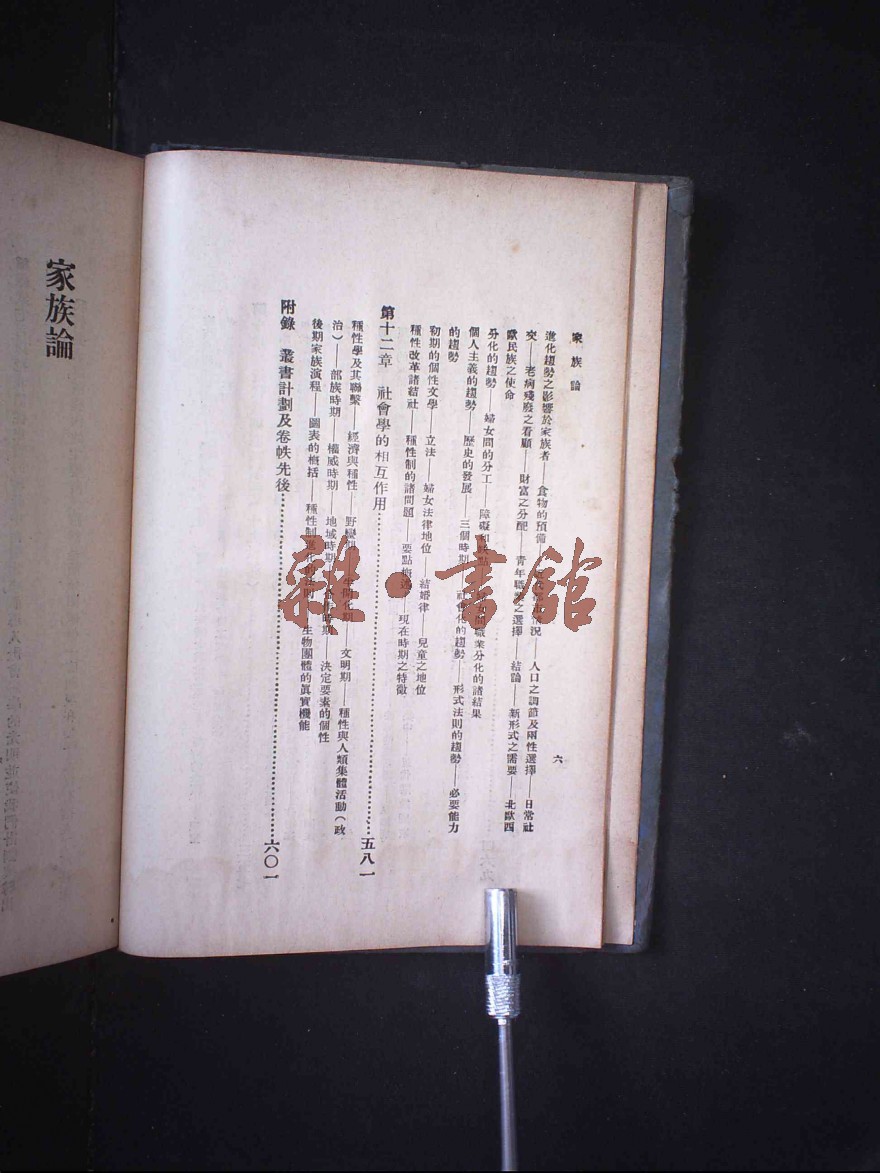 家族論
六
進化趨勢之影響於家族者——食物的預備——近代　況——人口之調節及兩性選擇——日常社
交——老病殘廢之看顧——財富之分配——青年職業之選擇——結論——新形式之需要——北歐西
歐民族之使命
分化的趨勢——婦女間的分工——障礙和　點——　職業分化的諸結果
個人主義的趨勢——歷史的發展——三個時期——社會化的趨勢——形式法則的趨勢——必要能力
的趨勢
初期的個性文學——立法——婦女法律地位——結婚律——兒童之地位
種性改革諸結社——種性制的諸問題——要點　——現在時期之特徵
第十二章　社會學的相互作用…………五八一
種性學及其聯繫——經濟與種性——野蠻期——半開化期——文明期——種性與人類集體活動（政
治）——部族時期——權威時期——地域時期——　時期——決定要素的個性
後期家族演程——圖表的概括——種性制進化的　——生物團體的眞實機能
附錄　叢書計劃及卷帙先後…………六〇一
家族論
雜·書館